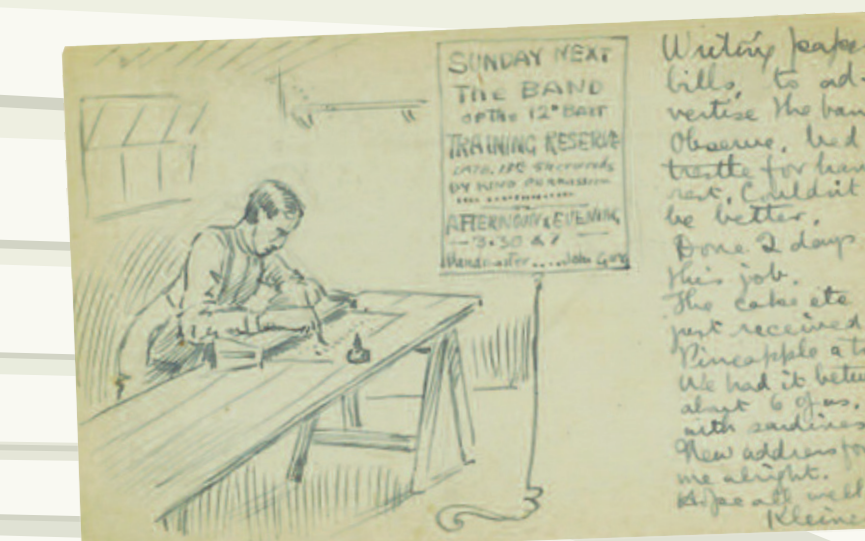 SUNDAY NEXT
THE BAND
OF THE 12º BATT
TRAINING RESERVE
BY KIND PERMISSION
AFTERNOON & EVENING
3.30 & 7
Writing
bills, to ad-
vertise the
Observe, bed
trestle for
rest. Couldn't
be better.
Done 2 days
this job.
The cake etc
just received
Pineapple a
We had it
about 6 of us,
with sardines
New address for
me alright.
Hope all well